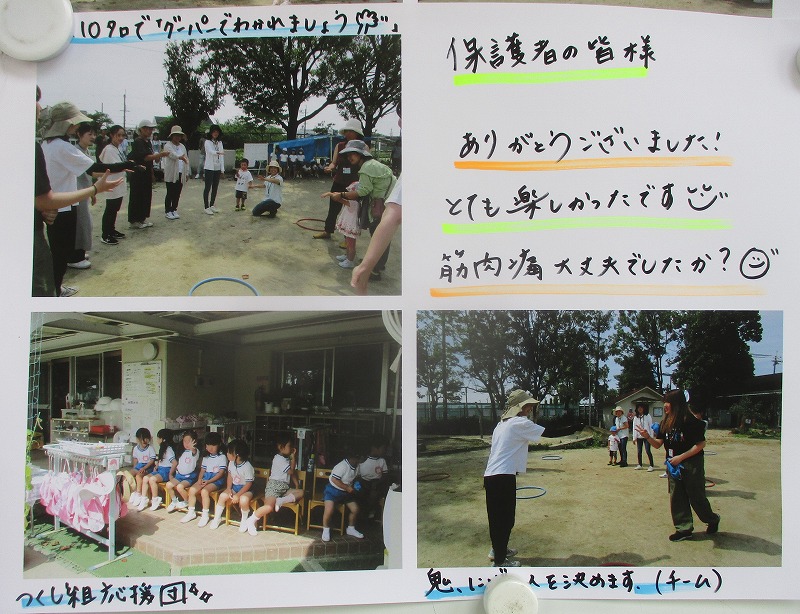 10タロで「グーパーでわかれましょう」
保護者の皆様
ありがとうございました!
とても楽しかったです
筋肉痛大丈夫でしたか?
つくし組応援団
鬼、にげ 人を決めます。(チーム)